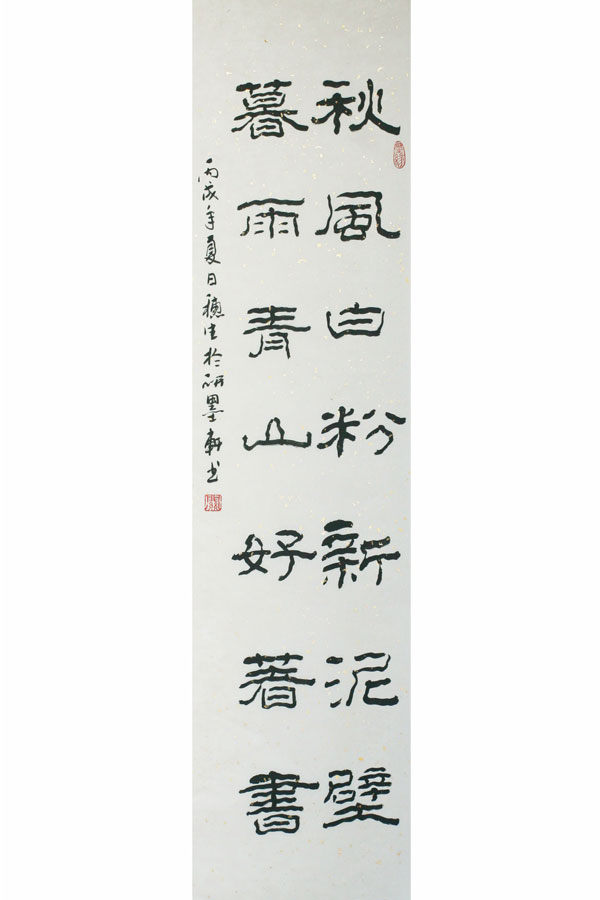 秋風白粉新泥壁
暮雨青山好著書
丙戌年夏日穗生於研墨軒書